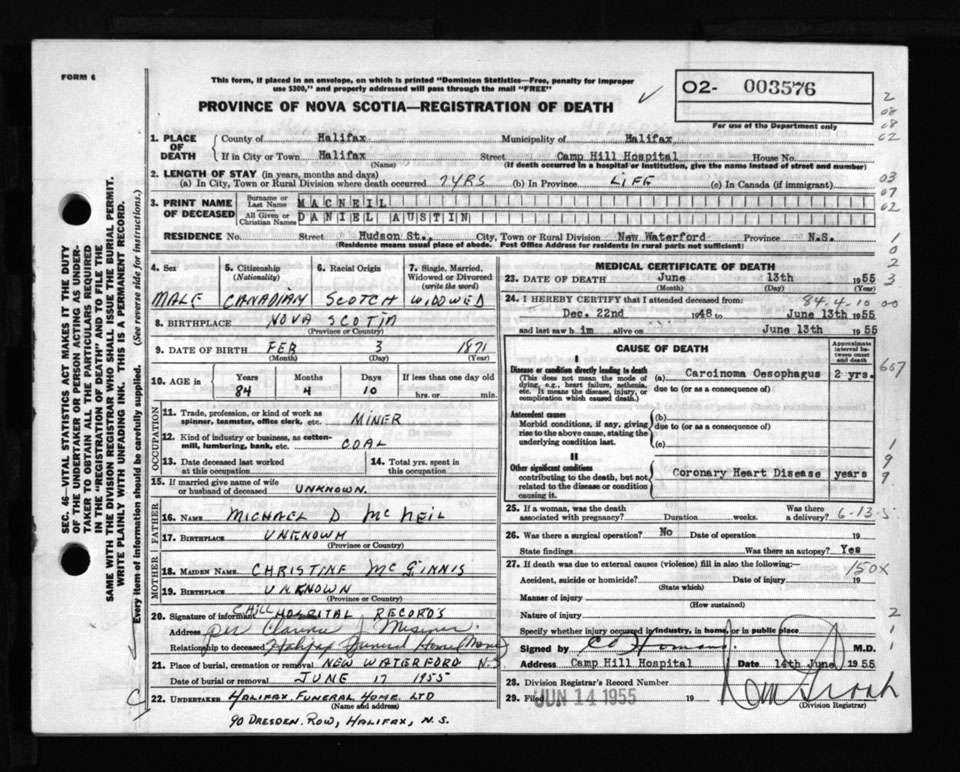 FORM 6
This form, if placed in an envelope, on which is printed "Dominion Statistics—Free, penalty for improper
use $300," and properly addressed will pass through the mail "FREE"
PROVINCE OF NOVA SCOTIA—REGISTRATION OF DEATH
02- 003576
For use of the Department only
1. PLACE OF DEATH
County of Halifax Municipality of Halifax
If in City or Town Halifax Street Camp Hill Hospital House No.
(Name) (If death occurred in a hospital or institution, give the name instead of street and number)
2. LENGTH OF STAY (in years, months and days)
(a) In City, Town or Rural Division where death occurred 7 YRS (b) In Province LIFE (c) In Canada (if immigrant)
3. PRINT NAME OF DECEASED
Surname or Last Name MACNEIL
All Given or Christian Names DANIEL AUSTIN
RESIDENCE No. Street Hudson St., City, Town or Rural Division New Waterford Province N.S.
(Residence means usual place of abode. Post Office Address for residents in rural parts not sufficient)
4. Sex
MALE
5. Citizenship (Nationality)
CANADIAN
6. Racial Origin
SCOTCH
7. Single, Married, Widowed or Divorced (write the word)
WIDOWED
8. BIRTHPLACE NOVA SCOTIA
(Province or Country)
9. DATE OF BIRTH FEB 3 1871
(Month) (Day) (Year)
10. AGE in Years Months Days If less than one day old
84 4 10 hrs. or min.
OCCUPATION
11. Trade, profession or kind of work as spinner, teamster, office clerk, etc. MINER
12. Kind of industry or business, as cotton-mill, lumbering, bank, etc. COAL
13. Date deceased last worked at this occupation
14. Total yrs. spent in this occupation
15. If married give name of wife or husband of deceased UNKNOWN.
FATHER
16. NAME MICHAEL D McNEIL
17. BIRTHPLACE UNKNOWN
(Province or Country)
MOTHER
18. MAIDEN NAME CHRISTINE McGINNIS
19. BIRTHPLACE UNKNOWN
(Province or Country)
20. Signature of informant C HILL HOSPITAL RECORDS
Address per Clarence J
Relationship to deceased Halifax Funeral Home
21. Place of burial, cremation or removal NEW WATERFORD N.S
Date of burial or removal JUNE 17 1955
22. UNDERTAKER HALIFAX FUNERAL HOME LTD
(Name and address)
90 DRESDEN ROW, HALIFAX, N.S.
MEDICAL CERTIFICATE OF DEATH
23. DATE OF DEATH June 13th 1955
(Month) (Day) (Year)
84.4.10.00
24. I HEREBY CERTIFY that I attended deceased from:
Dec. 22nd 1948 to June 13th 1955
and last saw h im alive on June 13th 1955
CAUSE OF DEATH
Approximate interval between onset and death
I
Disease or condition directly leading to death
(This does not mean the mode of dying, e.g., heart failure, asthenia, etc. It means the disease, injury, or complication which caused death.)
(a) Carcinoma Oesophagus 2 yrs.
due to (or as a consequence of)
Antecedent causes
Morbid conditions, if any, giving rise to the above cause, stating the underlying condition last.
(b)
due to (or as a consequence of)
(c)
II
Other significant conditions
contributing to the death, but not related to the disease or condition causing it.
Coronary Heart Disease years
25. If a woman, was the death associated with pregnancy? Duration weeks. Was there a delivery?
6-13-5
26. Was there a surgical operation? No Date of operation 19
State findings Was there an autopsy? Yes
27. If death was due to external causes (violence) fill in also the following:—
150X
Accident, suicide or homicide? Date of injury 19
(State which)
Manner of injury
(How sustained)
Nature of injury
Specify whether injury occurred in industry, in home, or in public place
Signed by M.D.
Address Camp Hill Hospital Date 14th June 1955
28. Division Registrar's Record Number
29. Filed JUN 14 1955 19
(Division Registrar)
SEC. 46—VITAL STATISTICS ACT MAKES IT THE DUTY
OF THE UNDERTAKER OR PERSON ACTING AS UNDER-
TAKER TO OBTAIN ALL THE PARTICULARS REQUIRED
IN THE "REGISTRATION OF DEATH" AND TO FILE THE
SAME WITH THE DIVISION REGISTRAR WHO SHALL ISSUE THE BURIAL PERMIT.
WRITE PLAINLY WITH UNFADING INK. THIS IS A PERMANENT RECORD.
Every item of information should be carefully supplied. (See reverse side for instructions.)
2
08
08
02
03
07
02
1
0
2
3
607
1
9
9
2
1